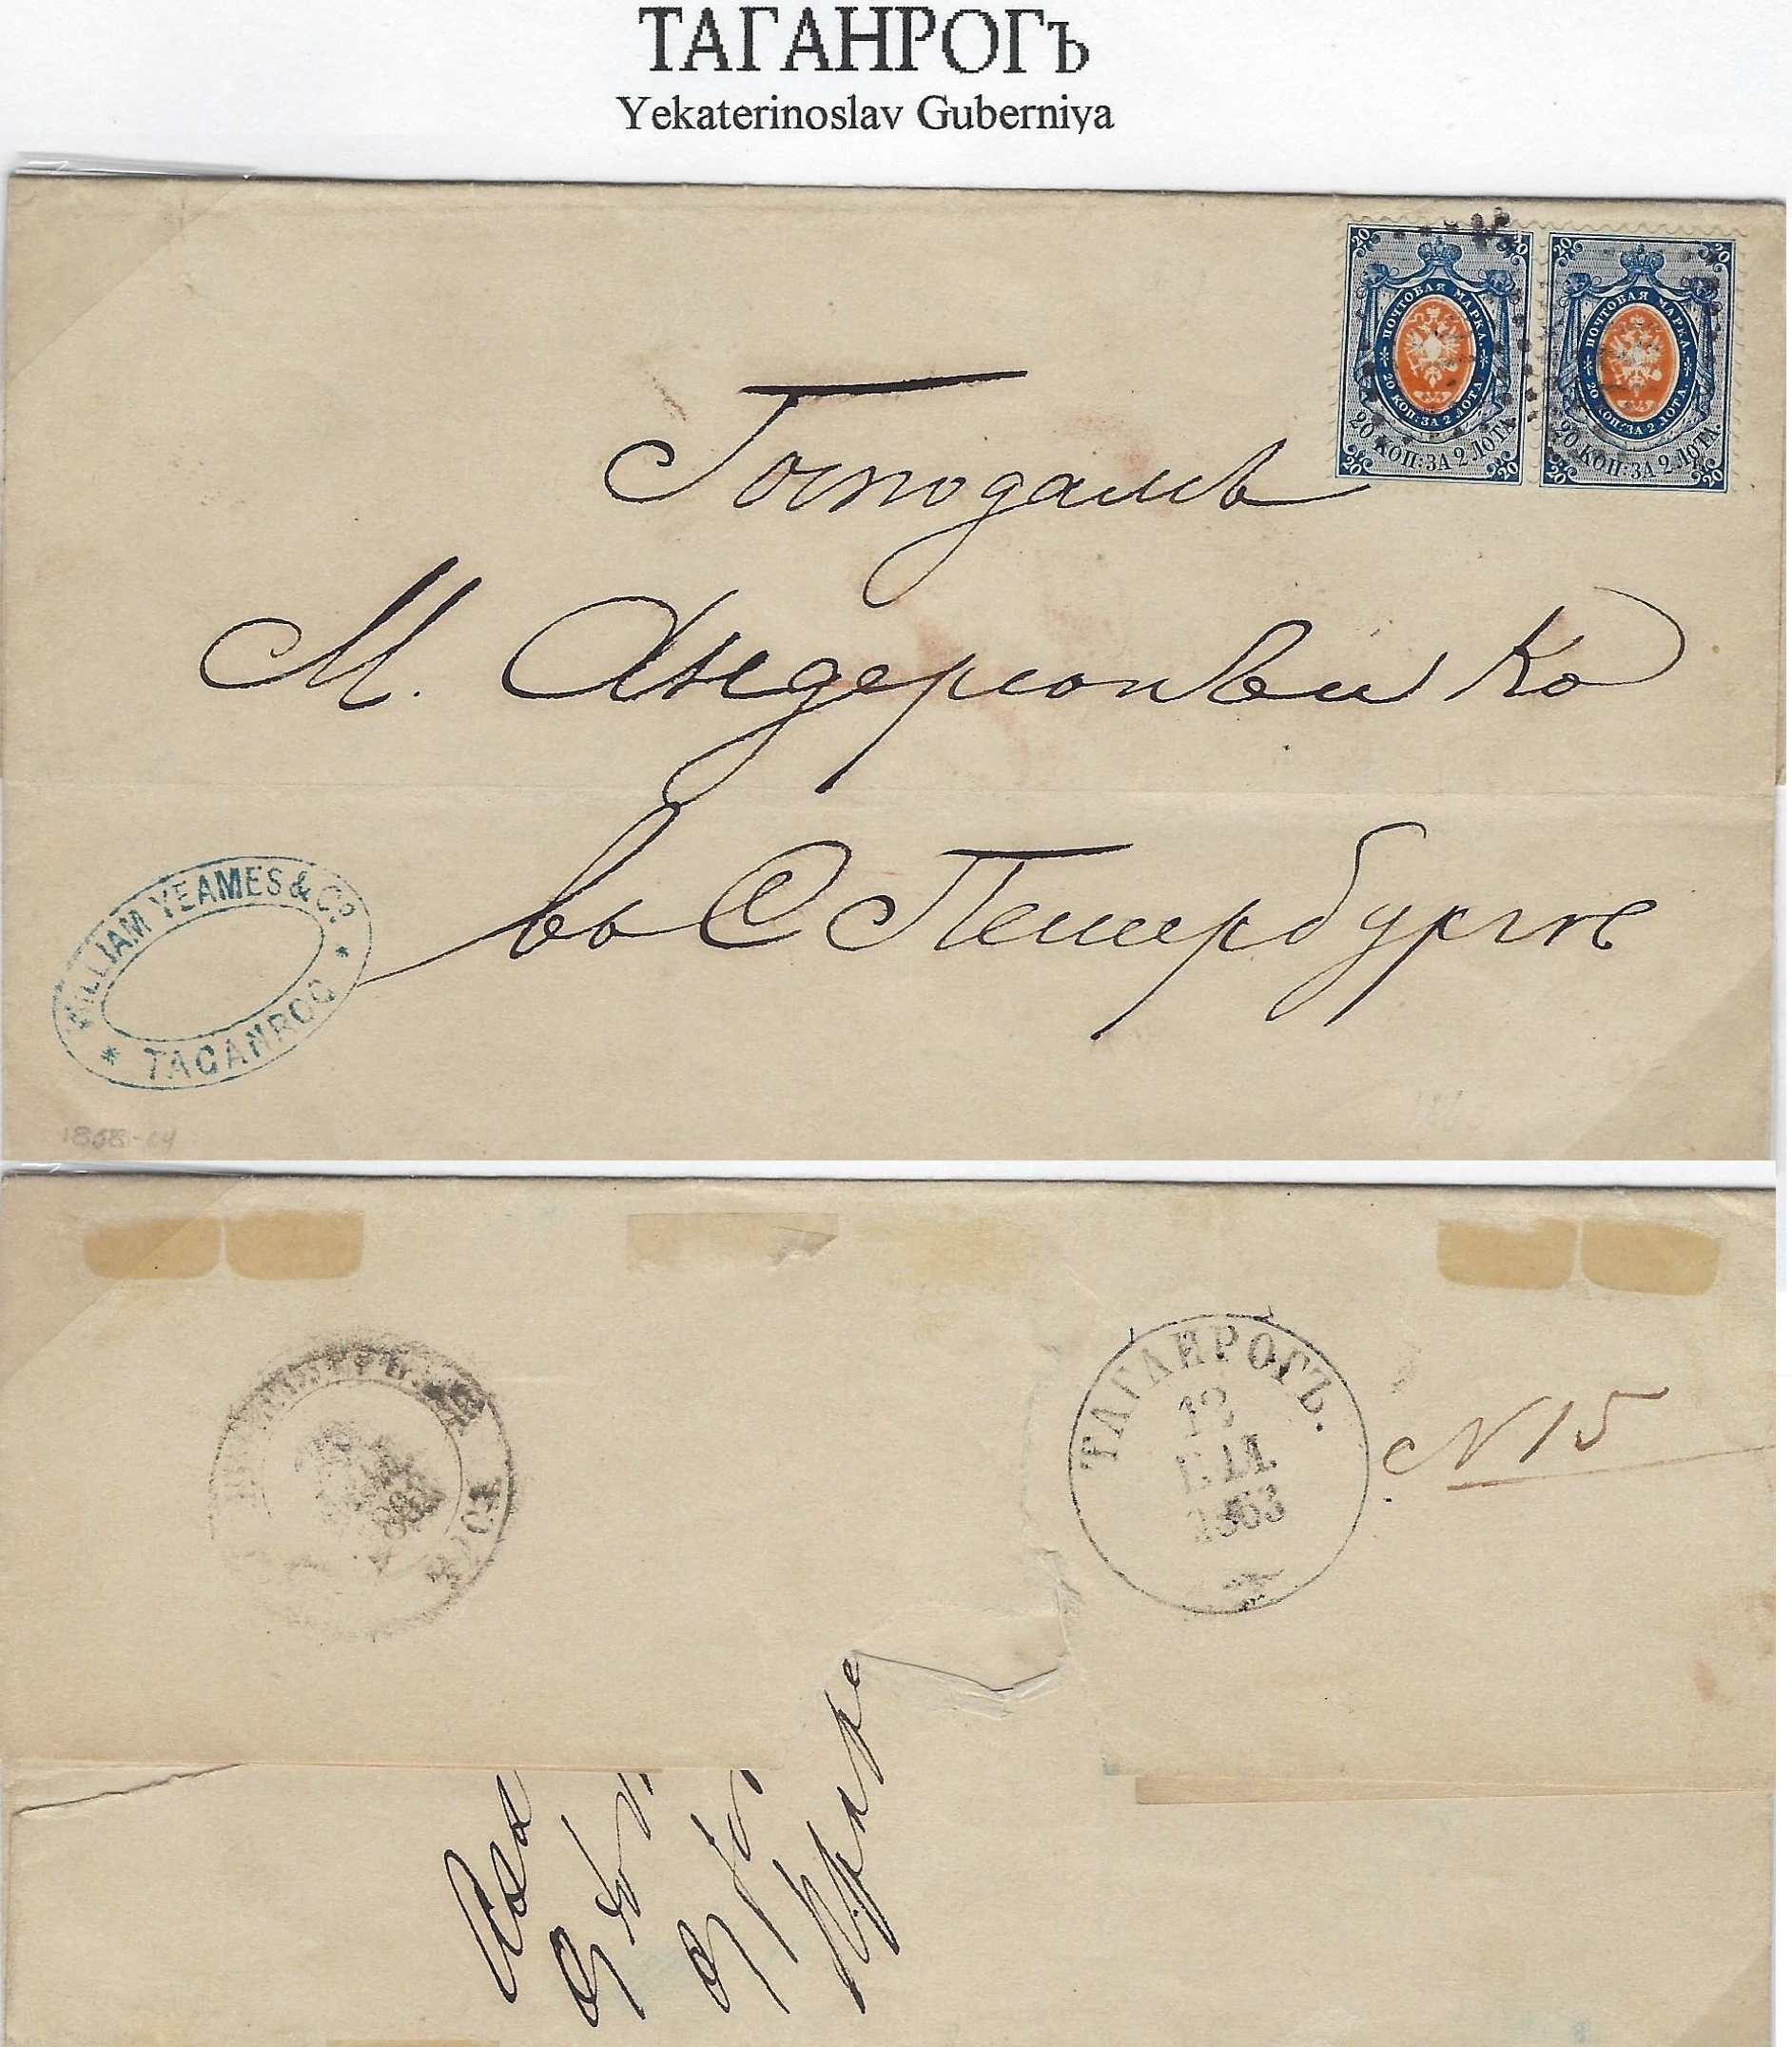 ТАГАНРОГЪ
Yekaterinoslav Guberniya
20 20
ПОЧТОВАЯ МАРКА
20 КОП: ЗА 2 ЛОТА
20 КОП: ЗА 2 ЛОТА
20 20
20 20
ПОЧТОВАЯ МАРКА
20 КОП: ЗА 2 ЛОТА
20 КОП: ЗА 2 ЛОТА
20 20
Господамъ
М. Андерсонъ и Ко
въ С Петербургѣ
WILLIAM YEAMES & Cº
* TAGANROG *
1858-64
ТАГАНРОГЪ.
12
1863
N 15